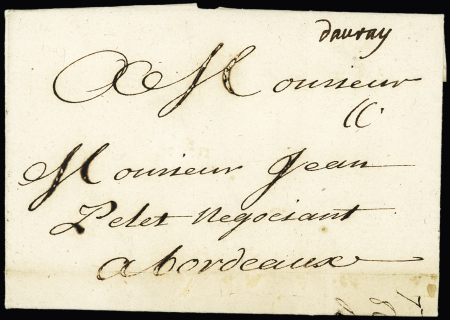 dauray
A Monsieur
Monsieur Jean
Pelet Negociant
a bordeaux